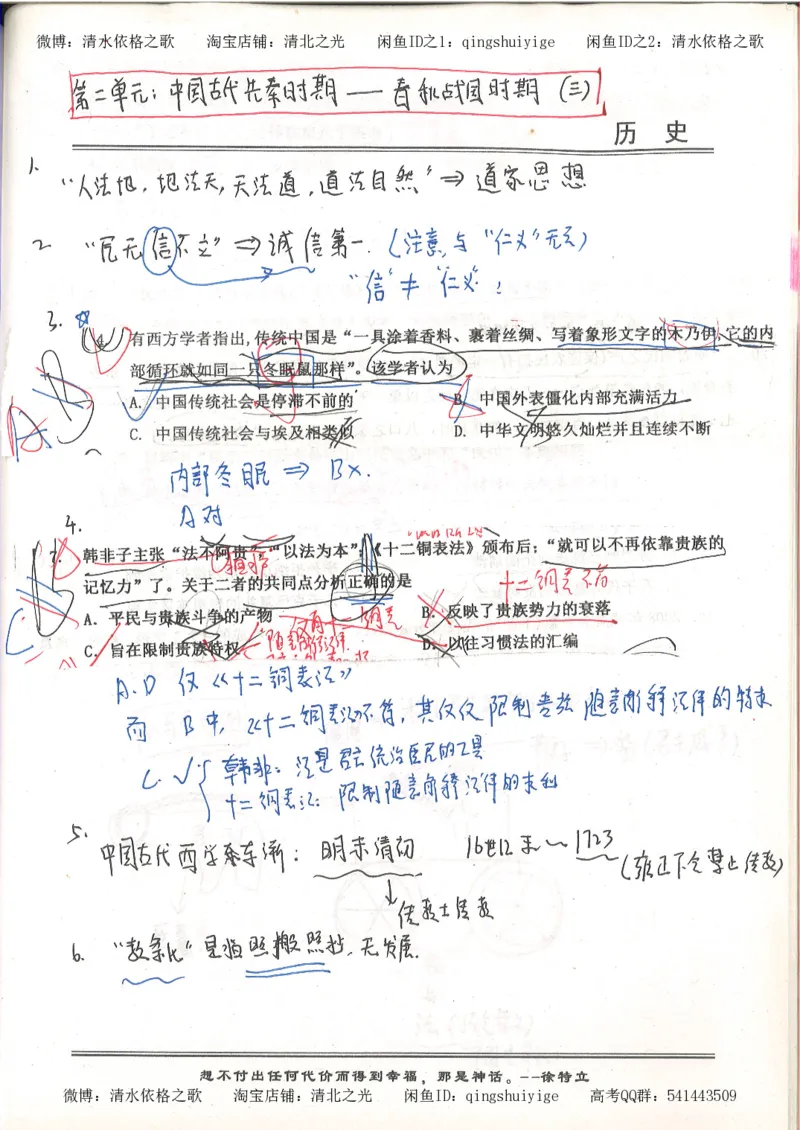 微博：清水依格之歌 淘宝店铺：清北之光 闲鱼ID之1：qingshuiyige 闲鱼ID之2：清水依格之歌
第二单元：中国古代先秦时期——春秋战国时期（三）
历 史
1.
"人法地，地法天，天法道，道法自然"⇒道家思想
2 "民无信不立"⇒诚信第一.（注意，与"仁义"无关）
"信"≠"仁义"！
3.
有西方学者指出，传统中国是“一具涂着香料、裹着丝绸、写着象形文字的木乃伊，它的内
部循环就如同一只冬眠鼠那样”。该学者认为
A. 中国传统社会是停滞不前的 B. 中国外表僵化内部充满活力
C. 中国传统社会与埃及相类似 D. 中华文明悠久灿烂并且连续不断
内部冬眠⇒B×.
A对
4.
韩非子主张“法不阿贵”，“以法为本”；《十二铜表法》颁布后：“就可以不再依靠贵族的
记忆力”了。关于二者的共同点分析正确的是
十二铜表不符
A. 平民与贵族斗争的产物 B. 反映了贵族势力的衰落
C. 旨在限制贵族特权 D. 以往习惯法的汇编
A.D 仅《十二铜表法》
而 B中，《十二铜表法》不符，其仅仅限制贵族随意解释法律的特权
C.√ 韩非：法是君主统治臣民的工具
十二铜表法：限制随意解释法律的权利
5.
中国古代西学东渐：明末清初 16世纪末～1723
（雍正下令禁止传教）
↓传教士传教
6. "教条化"是指照搬照抄，无发展.
想不付出任何代价而得到幸福，那是神话。--徐特立
微博：清水依格之歌 淘宝店铺：清北之光 闲鱼ID：qingshuiyige 高考QQ群：541443509